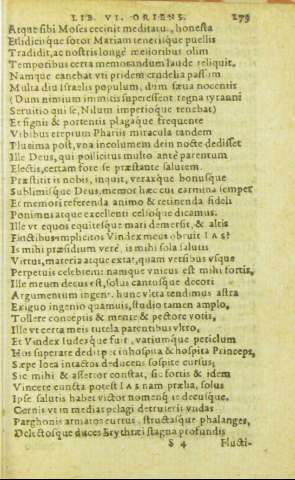 LIB. VI. ORIENS. 279
Atque sibi Moses cecinit meditatu, honesta
Estidicique soror Mariam teneriique puellis
Tradidit, ac nostris longè melioribus olim
Temporibus certa memorandum laude reliquit.
Namque canebat vti pridem crudelia passum
Multa diu Israelis populum, dum sæua nocentis
(Dum nimium inimicis superesset regna tyranni
Seruitio qui se, Nilum imperioque tenebat)
Et signis & portentis plagaque frequente
Vibibus ereptum Phariis miracula tandem
Plurima post, vna incolumem dein nocte dedisset
Ille Deus, qui pollicitus multo ante parentum
Electis, certam fore se præstante salutem.
Præstitit is nobis, inquit, veraxque bonusque
Sublimisque Deus, memor hæc cui carmina semper
Et memori referenda animo & retinenda fidelis
Ponimus atque excellenti celsoque dicamus.
Ille vt equos equitesque mari demersit, & altis
Fluctibus implicitos Vindex meus obruit IAS?
Is mihi præsidium verè, is mihi sola salutis
Virtus, materia atque extat, quam versibus vsque
Perpetuis celebrem: namque vnicus est mihi fortis,
Ille meum decus est, solus cantusque decori
Argumentum ingens. hunc vltra tendimus astra
Exiguo ingenio quamuis, studio tamen amplo,
Tollere conceptis & mente & pectore votis,
Ille vt certa meis tutela parentibus vltro,
Et Vindex Iudexque fuit, variumque periclum
Nos superare dedit per inhospita & hospita Princeps,
Sæpe loca intactos deducens sospite cursus;
Sic mihi & assertor constat, sic fortis & idem
Vincere cuncta potest IAS nam prælia, solus
Ipse salutis habet victor nomenque decusque.
Cernis vt in medias pelagi detruserit vndas
Pharaonis armatos currus, structasque phalanges,
Delectosque duces Erythræi stagna profundis
S 4 Flucti-